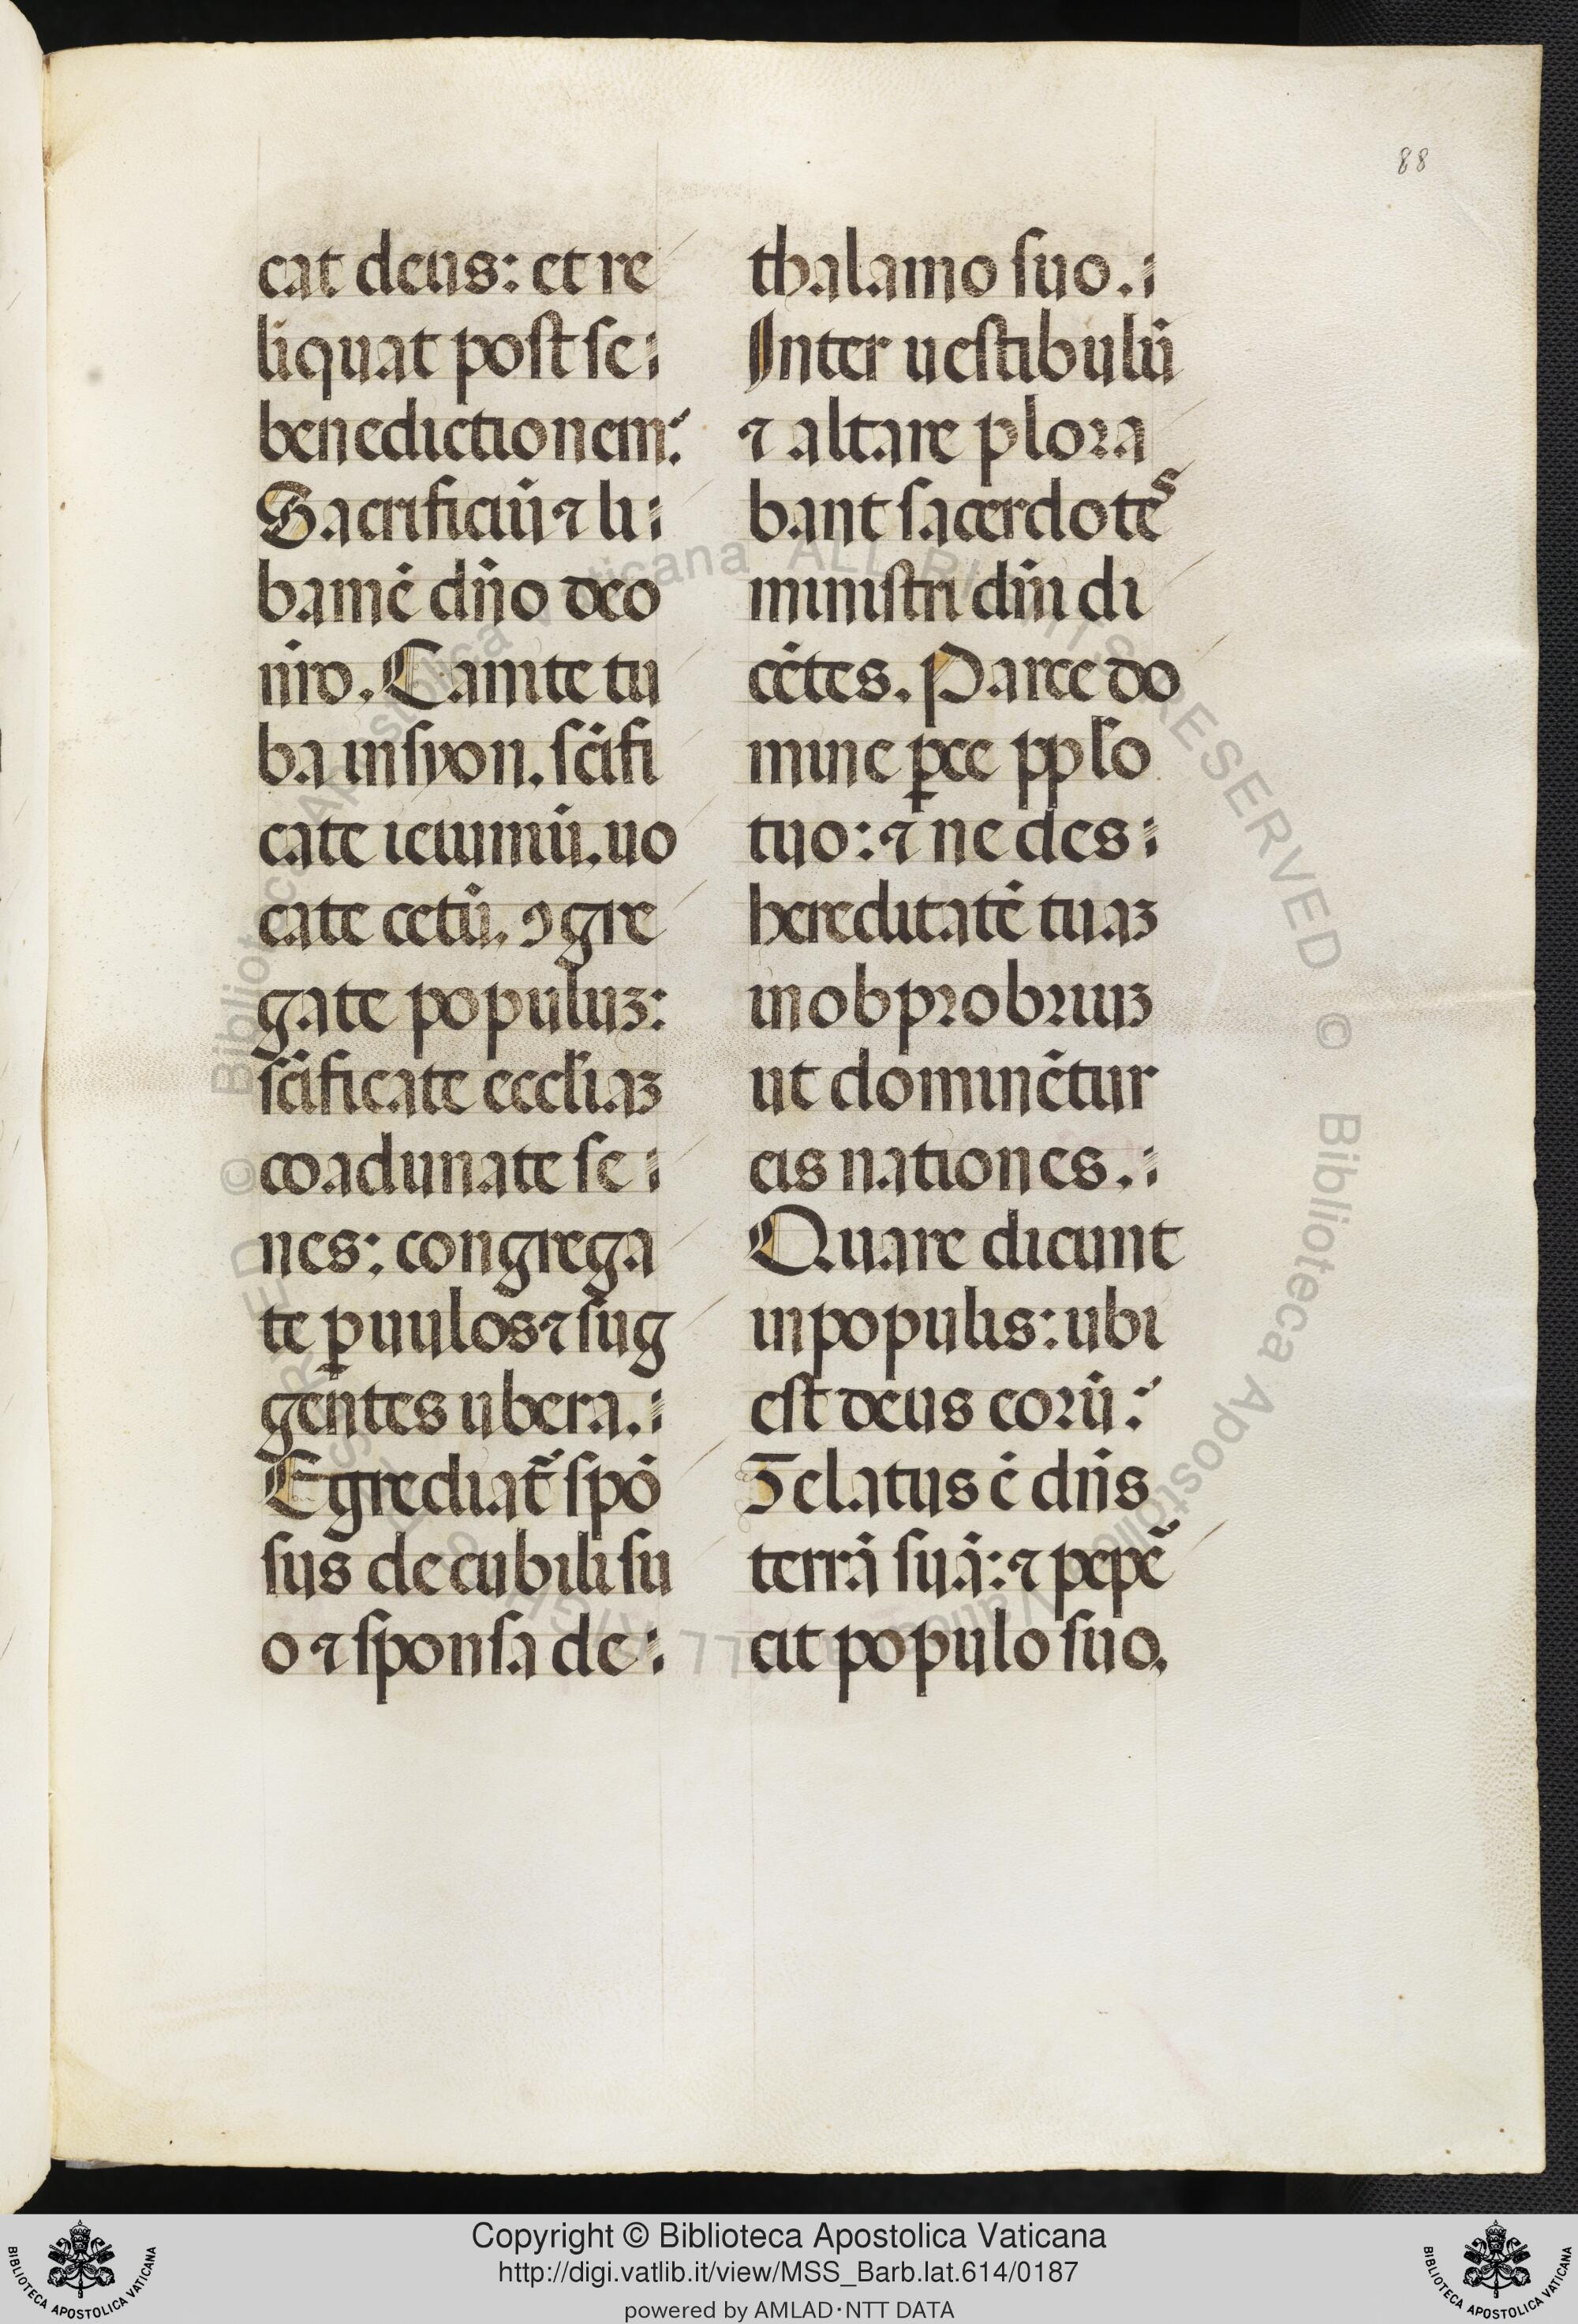 88
cat deus: et re
liquat post se
benedictionem.
Sacrificiū ⁊ li
bamē dño deo
nr̄o. Canite tu
ba in syon. sc̄ifi
cate ieiuniū. uo
cate cetū. ꝯgre
gate populuꝫ:
sc̄ificate eccl̄iaꝫ
coadunate se
nes: congrega
te ꝑuulos ⁊ sug
gentes ubera.
Egrediat᷑ spō
sus de cubili su
o ⁊ sponsa de
thalamo suo.
Inter uestibulū
⁊ altare plora
bant sacerdotes
ministri dn̄i di
cētes. Parce do
mine ꝑce pplo
tuo: ⁊ ne des
hereditatē tuaꝫ
in obprobriuꝫ
ut dominētur
eis nationes.
Quare dicunt
in populis: ubi
est deus eorū:
Zelatus ē dn̄s
terrā suā: ⁊ pepē
cit populo suo.
© Biblioteca Apostolica Vaticana ALL RIGHTS RESERVED © Biblioteca Apostolica Vaticana ALL RIGHTS RESERVED
Copyright © Biblioteca Apostolica Vaticana
http://digi.vatlib.it/view/MSS_Barb.lat.614/0187
powered by AMLAD·NTT DATA
BIBLIOTECA APOSTOLICA VATICANA
BIBLIOTECA APOSTOLICA VATICANA